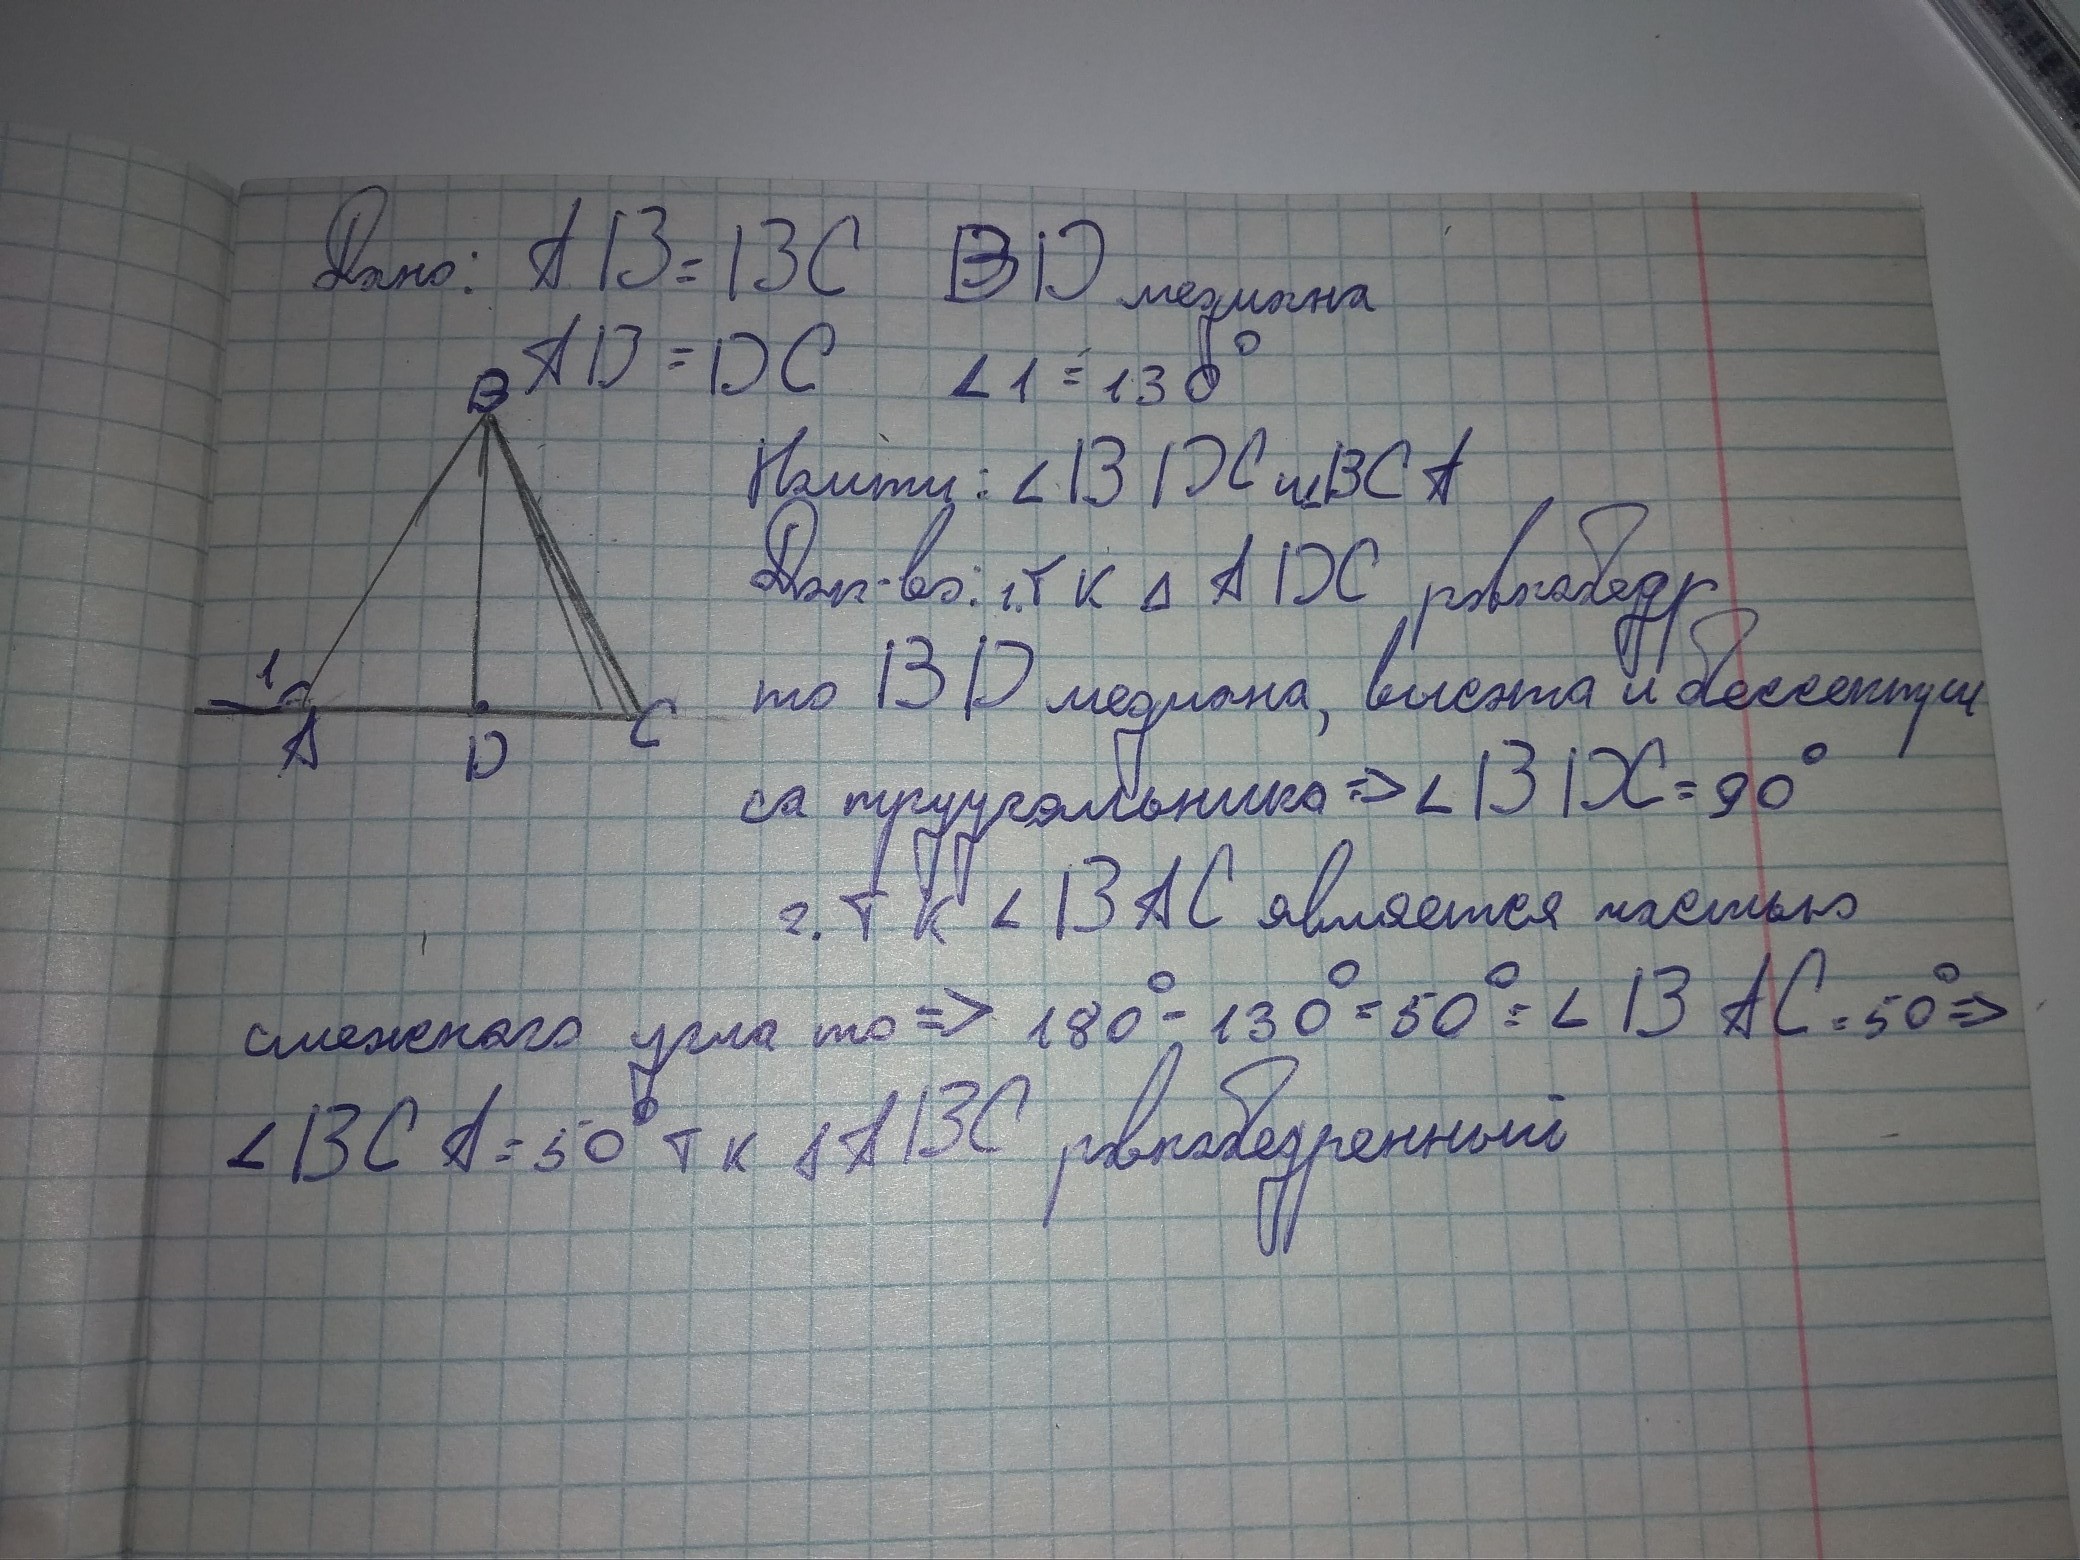 Дано: AB = BC BD медиана
AD = DC ∠1 = 130°
B
Найти: ∠BDC и ∠BCA
Док-во: 1. Т К Δ ADC равнобедр
1
то BD медиана, высота и бессектри
A D C
са труугольника => ∠BDC = 90°
2. Т К ∠BAC является частью
смежного угла то => 180° - 130° = 50° = ∠BAC = 50° =>
∠BCA = 50° Т К Δ ABC равнобедренный